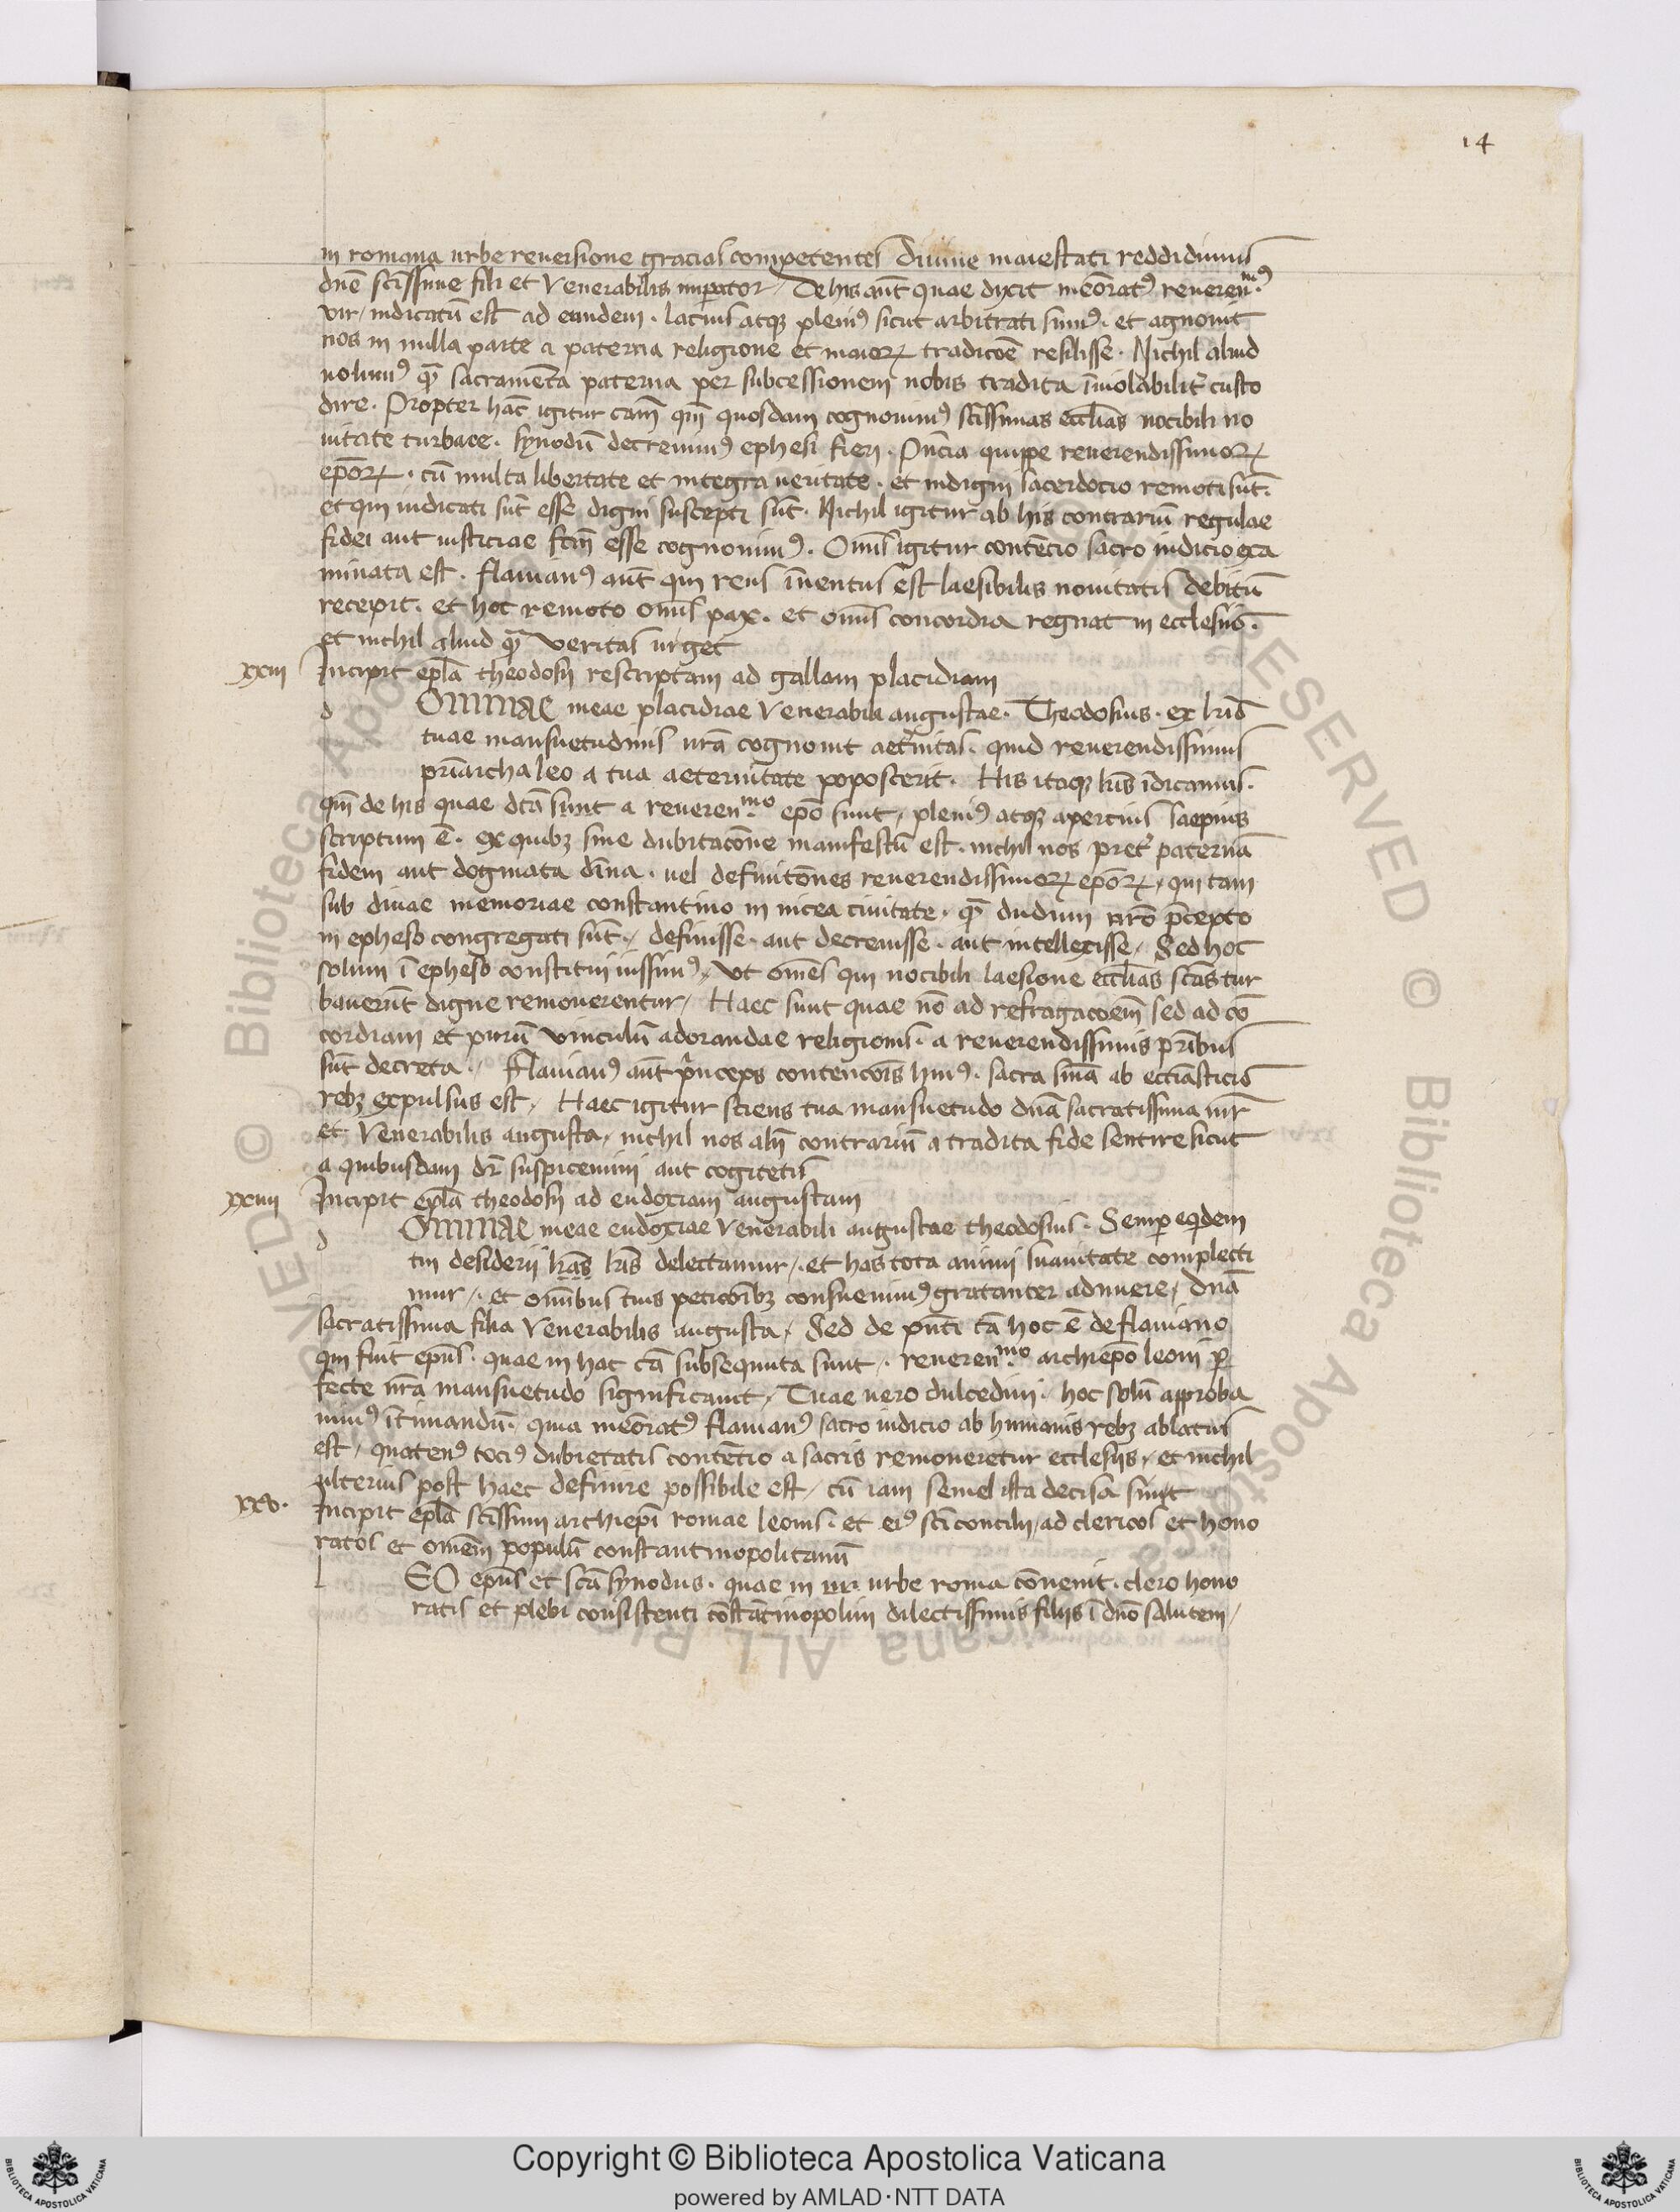 14
in romana urbe reuersione gracias competentes diuine maiestati reddidimus
dne̅ sc̅issime fili et Venerabilis imperator / De his au̅t quae dixit meo̅rat9 reueren.m9
vir / indicatu̅ est ad eundem . lacius atqꝫ pleni9 sicut arbitrati sum9 . et agnouit
nos in nulla parte a paterna religione et maioꝝ tradico̅e resilisse . Nichil aliud
uolum9 qua̅ sacrame̅ta paterna per subcessionem nobis tradita i̅uiolabilit̾ custo
dire . Propter ha̅c igitur cam̅ qm̅ quosdam cognouim9 sc̅issimas eccl̅ias nocibili no
uitate turbare . synodu̅ decreuim9 ephesi fieri . Pn̅cia quippe reuerendissimoꝝ
epo̅ꝝ . cu̅ multa libertate et integra ueritate . et indigni sacerdocio remoti su̅t .
et qui iudicati su̅t esse digni suscepti su̅t . Nichil igitur ab his contrariu̅ regulae
fidei aut iusticiae fcm̅ esse cognouim9 . Omīs igitur conte̅cio sacro iudicio exa
minata est . flauian9 au̅t qui reus i̅uentus est laesibilis nouitatis debitu̅
recepit . et hoc remoto omīs pax . et omīs concordia regnat in ecclesiis .
et nichil aliud qua̅ veritas urget
xxiii Incipit epl̅a theodosij rescriptam ad gallam placidiam
d Ominae meae placidiae Venerabili augustae . Theodosius . ex lr̅is
tuae mansuetudinis nr̅a cognouit aet̾nitas . quid reuerendissimus
pri̅archa leo a tua aeternitate poposcerit . His itaqꝫ lr̅is i̅dicamus .
qm̅ de his quae dc̅a sunt a reueren.mo epo̅ sunt / pleni9 atqꝫ apertius saepius
scriptum e̅ . ex quibꝫ sine dubitaco̅ne manifestu̅ est . nichil nos pret̾ paterna̅
fidem aut dogmata di̅na . uel definito̅nes reuerendissimoꝝ epo̅ꝝ / qui tam
sub diuae memoriae constantino in nicea ciuitate . qua̅ dudum nr̅o p̅cepto
in epheso congregati su̅t / definisse . aut decreuisse . aut intellexisse / Sed hoc
solum i̅ epheso constitui iussim9 / Vt ome̅s qui nocibili laesione eccl̅ias sc̅as tur
baueru̅t digne remouerentur / Haec sunt quae no̅ ad refragaco̅em sed ad co̅
cordiam et puru̅ vinculu̅ adorandae religionis . a reuerendissimis pr̅ibus
su̅t decreta / Flauian9 au̅t pri̅nceps contencōis hui9 . sacra sn̅ia ab eccl̅iasticis
rebꝫ expulsus est / Haec igitur sciens tua mansuetudo dn̅a sacratissima mr̅
et Venerabilis augusta / nichil nos aliq̅ contrariu̅ a tradita fide sentire sicut
a quibusdam dr̅ suspicemini aut cogitetis
xxiiii Incipit epl̅a theodosij ad eudoxiam augustam
d Ominae meae eudoxiae Venerabili augustae theodosius . Semper eqidem
tui desiderij lr̅as lr̅is delectamur / et has tota animi suauitate complecti
mur / et omi̅bus tuis peticōibꝫ consueuim9 gratanter adnuere / dn̅a
sacratissima filia Venerabilis augusta / Sed de pn̅ti ca̅ hoc e̅ de flauiano
qui fuit epu̅s . quae in hac ca̅ subsequuta sunt / reueren.mo archiepo̅ leoni per
fecte nr̅a mansuetudo significauit / Tuae uero dulcedini / hoc solu̅ approba
uim9 i̅timandu̅ . quia meo̅rat9 flauian9 sacro iudicio ab humanis rebꝫ ablatus
est / quaten9 toci9 dubietatis conte̅cio a sacris remoueretur ecclesijs / et nichil
ulterius post haec definire possibile est / cu̅ iam semel ista decisa sunt
xxv . Incipit epl̅a sc̅issimi archiepi̅ romae leonis . et ei9 sc̅i concilij / ad clericos et hono
ratos et ome̅m populu̅ constantinopolitanu̅
l EO epu̅s et sc̅a synodus . quae in ur urbe roma co̅uenit . clero hono
ratis et plebi consistenti co̅sta̅tinopolim dilectissimis filijs i̅ dn̅o salutem /
© Biblioteca Apostolica Vaticana ALL RIGHTS RESERVED © Biblioteca Apostolica
Copyright © Biblioteca Apostolica Vaticana
powered by AMLAD·NTT DATA